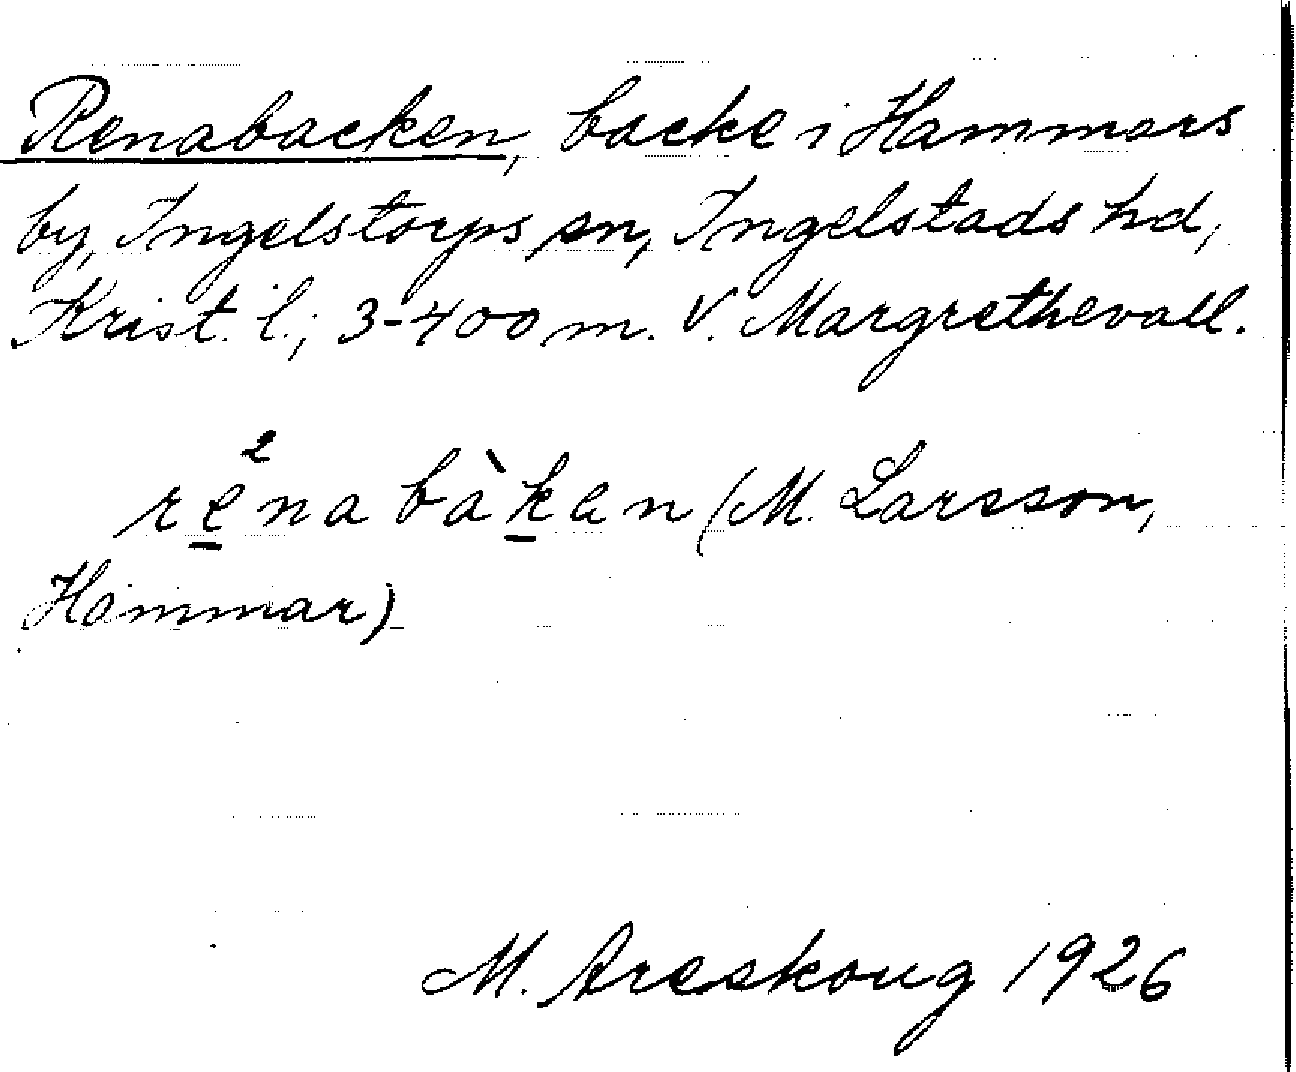 Renabacken, backe i Hammars
by, Ingelstorps sn, Ingelstads hd,
Krist. l.; 3-400 m. V. Margrethevall.
re²na bàken (M. Larsson,
Hammar)
M. Areskoug 1926